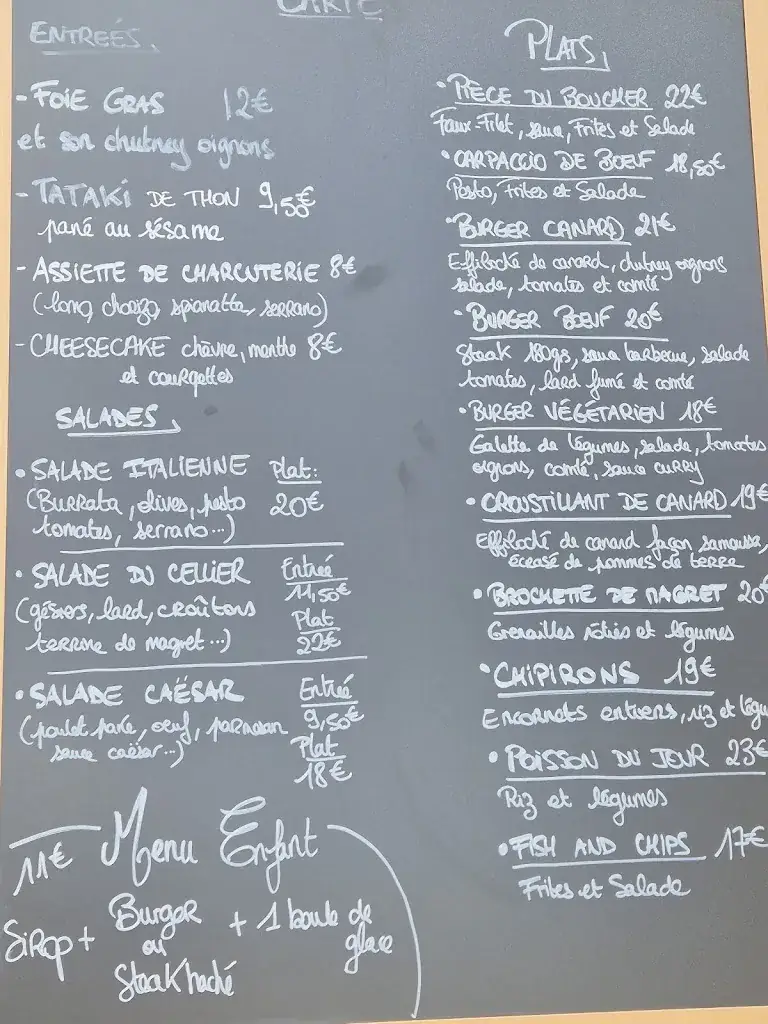 CARTE
ENTREÉS
- FOIE GRAS 12€
et son chutney oignons
- TATAKI DE THON 9,50€
pané au sésame
- ASSIETTE DE CHARCUTERIE 8€
(lomo, chorizo, spianatta, serrano)
- CHEESECAKE chèvre, menthe 8€
et courgettes
SALADES
• SALADE ITALIENNE Plat:
(Burrata, olives, pesto 20€
tomates, serrano...)
• SALADE DU CELLIER Entrée
11,50€
(gésiers, lard, croûtons Plat
terrine de magret...) 22€
• SALADE CAËSAR Entrée
9,50€
(poulet pané, oeuf, parmesan Plat
sauce caësar...) 18€
Menu Enfant
11€
Sirop + Burger + 1 boule de
ou glace
Steak haché
PLATS
• PIÈCE DU BOUCHER 22€
Faux-Filet, sauce, Frites et Salade
• CARPACCIO DE BOEUF 18,50€
Pesto, Frites et Salade
• BURGER CANARD 21€
Effiloché de canard, chutney oignons
salade, tomates et comté
• BURGER BOEUF 20€
Steak 180gs, sauce barbecue, salade
tomates, lard fumé et comté
• BURGER VÉGÉTARIEN 18€
Galette de légumes, salade, tomates
oignons, comté, sauce CURRY
• CROUSTILLANT DE CANARD 19€
Effiloché de canard façon samoussa,
écrasé de pommes de terre
• BROCHETTE DE MAGRET 20€
Grenailles rôties et légumes
• CHIPIRONS 19€
Encornets entiers, riz et légu
• POISSON DU JOUR 23€
Riz et légumes
• FISH AND CHIPS 17€
Frites et Salade